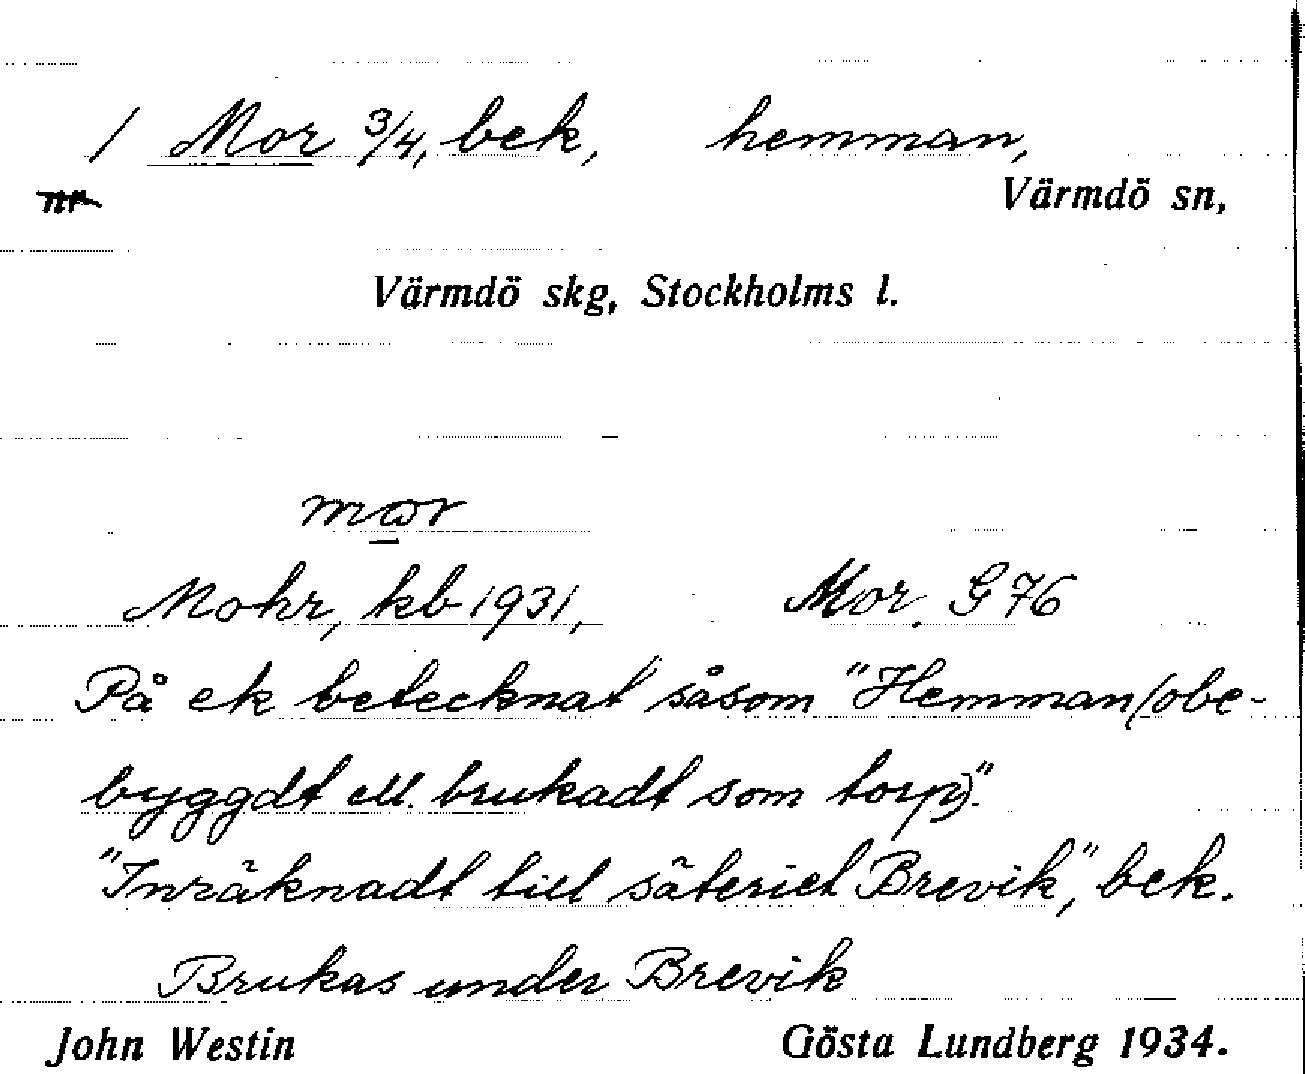 / Mor 3/4, bek, hemman,
nr
Värmdö sn,
Värmdö skg, Stockholms l.
mor
Mohr, kb 1931, Mor. G 76
På ek betecknat såsom "Hemman (obe-
byggdt ell. brukadt som torp)."
"Inräknadt till säteriet Brevik", bek.
Brukas under Brevik
John Westin Gösta Lundberg 1934.